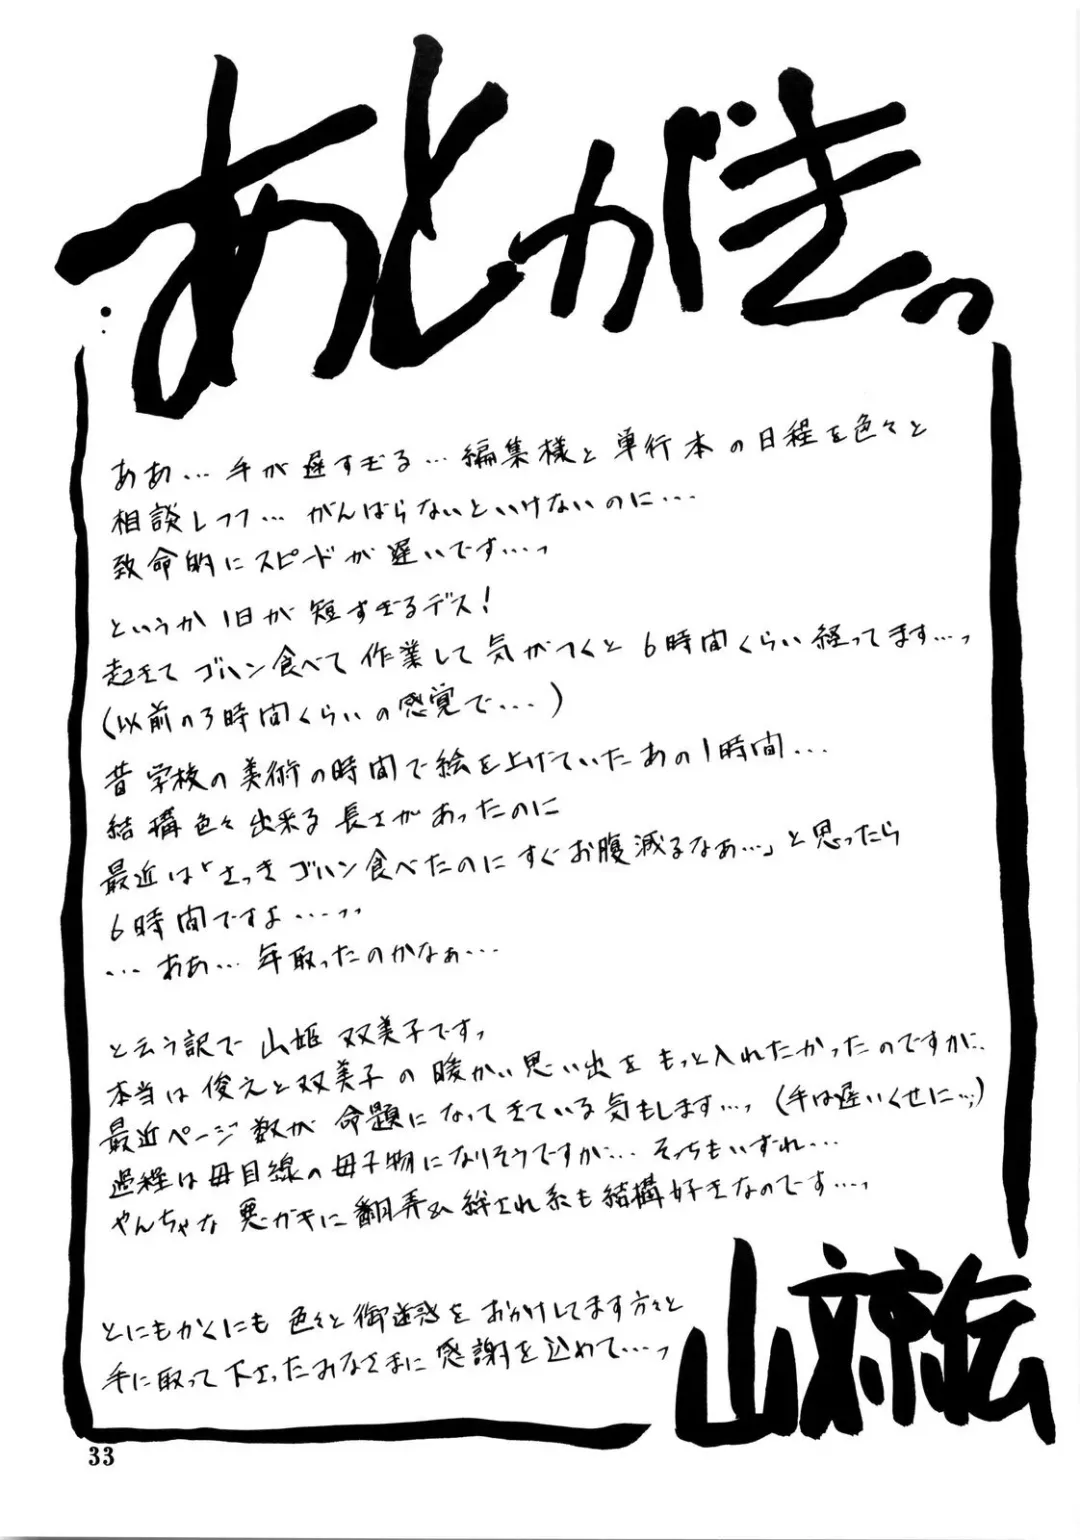 あとがきっ
ああ…手が遅すぎる…編集様と単行本の日程を色々と
相談しつつ…がんばらないといけないのに…
致命的にスピードが遅いです…っ
というか1日が短すぎるデス!
起きてゴハン食べて作業して気がつくと6時間くらい経ってます…っ
(以前の3時間くらいの感覚で…)
昔学校の美術の時間で絵を上げていたあの1時間…
結構色々出来る長さがあったのに
最近は「さっきゴハン食べたのにすぐお腹減るなぁ…」と思ったら
6時間ですよ…っっ
…ああ…年取ったのかなぁ…
と云う訳で山姫双美子ですっ
本当は俊之と双美子の暖かい思い出をもっと入れたかったのですが、
最近ページ数が命題になってきている気もします…っ(手は遅いくせに…;)
過程は母目線の母子物になりそうですが…そっちもいずれ…
やんちゃな悪ガキに翻弄&絆され系も結構好きなのです…っ
とにもかくにも色々と御迷惑をおかけしてます方々と
手に取って下さったみなさまに感謝を込めて…っ
山文京伝
33